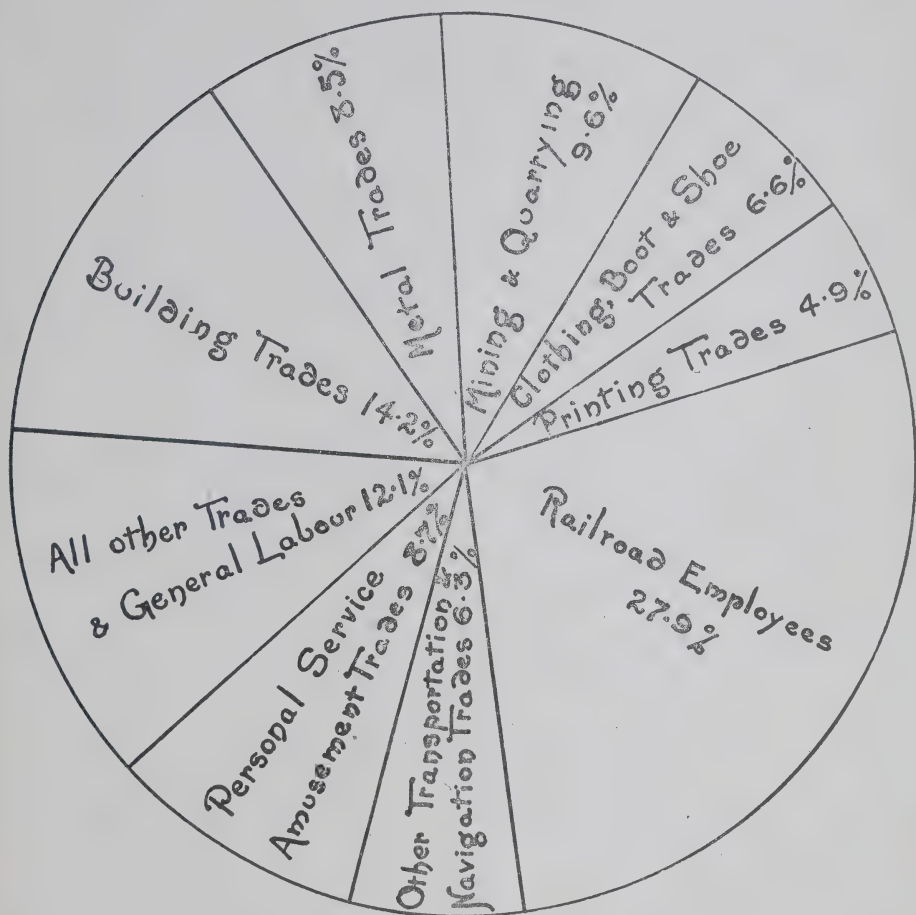 Metal Trades 8.5%
Mining & Quarrying
9.6%
Clothing, Boot & Shoe
Trades 6.6%
Printing Trades 4.9%
Railroad Employees
27.9%
Other Transportation &
Navigation Trades 6.3%
Personal Service
Amusement Trades 8.7%
All other Trades
& General Labour 12.1%
Building Trades 14.2%